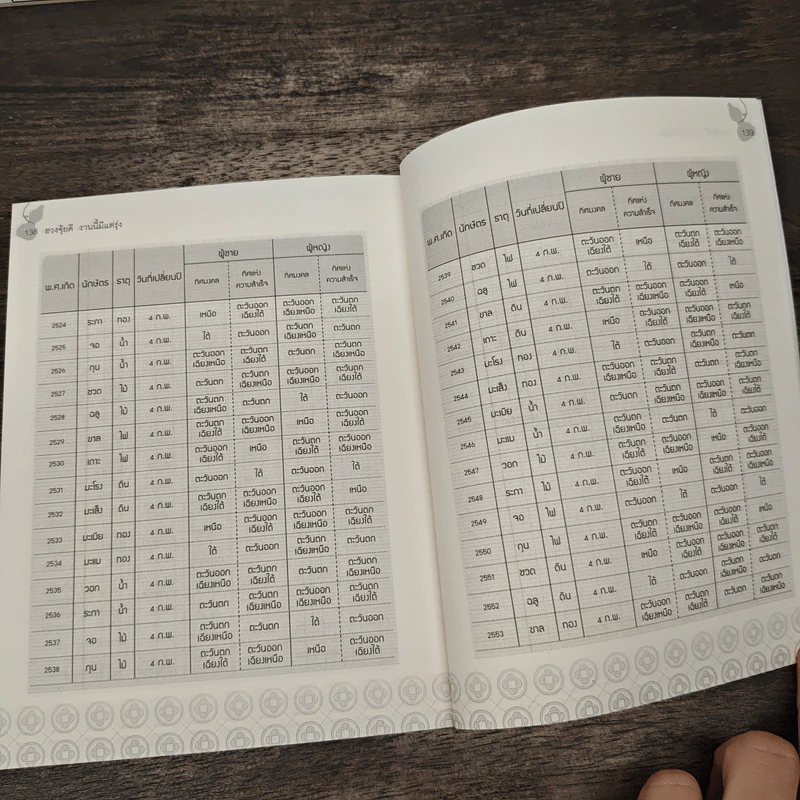 138 ฮวงจุ้ยดี งานนี้มีแต่รุ่ง
ผู้ชาย ผู้หญิง
พ.ศ.เกิด นักษัตร ธาตุ วันที่เปลี่ยนปี ทิศมงคล ทิศแห่งความสำเร็จ ทิศมงคล ทิศแห่งความสำเร็จ
2524 ระกา ทอง 4 ก.พ. เหนือ ตะวันออกเฉียงใต้ ตะวันออกเฉียงเหนือ ตะวันตกเฉียงใต้
2525 จอ น้ำ 4 ก.พ. ใต้ ตะวันออก ตะวันตกเฉียงเหนือ ตะวันตก
2526 กุน น้ำ 4 ก.พ. ตะวันออกเฉียงเหนือ ตะวันตกเฉียงใต้ ตะวันตก ตะวันตกเฉียงเหนือ
2527 ชวด ไม้ 4 ก.พ. ตะวันตก ตะวันตกเฉียงเหนือ ตะวันออกเฉียงเหนือ ตะวันตกเฉียงใต้
2528 ฉลู ไม้ 4 ก.พ. ตะวันตกเฉียงเหนือ ตะวันตก ใต้ ตะวันออก
2529 ขาล ไฟ 4 ก.พ. ตะวันตกเฉียงใต้ ตะวันออกเฉียงเหนือ เหนือ ตะวันออกเฉียงใต้
2530 เถาะ ไฟ 4 ก.พ. ตะวันออกเฉียงใต้ เหนือ ตะวันตกเฉียงใต้ ตะวันออกเฉียงเหนือ
2531 มะโรง ดิน 4 ก.พ. ตะวันออก ใต้ ตะวันออก ใต้
2532 มะเส็ง ดิน 4 ก.พ. ตะวันตกเฉียงใต้ ตะวันออกเฉียงเหนือ ตะวันออกเฉียงใต้ เหนือ
2533 มะเมีย ทอง 4 ก.พ. เหนือ ตะวันออกเฉียงใต้ ตะวันออกเฉียงเหนือ ตะวันตกเฉียงใต้
2534 มะแม ทอง 4 ก.พ. ใต้ ตะวันออก ตะวันตกเฉียงเหนือ ตะวันตก
2535 วอก น้ำ 4 ก.พ. ตะวันออกเฉียงเหนือ ตะวันตกเฉียงใต้ ตะวันตก ตะวันตกเฉียงเหนือ
2536 ระกา น้ำ 4 ก.พ. ตะวันตก ตะวันตกเฉียงเหนือ ตะวันออกเฉียงเหนือ ตะวันตกเฉียงใต้
2537 จอ ไม้ 4 ก.พ. ตะวันตกเฉียงเหนือ ตะวันตก ใต้ ตะวันออก
2538 กุน ไม้ 4 ก.พ. ตะวันตกเฉียงใต้ ตะวันออกเฉียงเหนือ เหนือ ตะวันออกเฉียงใต้
139
ผู้ชาย ผู้หญิง
พ.ศ.เกิด นักษัตร ธาตุ วันที่เปลี่ยนปี ทิศมงคล ทิศแห่งความสำเร็จ ทิศมงคล ทิศแห่งความสำเร็จ
2539 ชวด ไฟ 4 ก.พ. ตะวันออกเฉียงใต้ เหนือ ตะวันตกเฉียงใต้ ตะวันออกเฉียงเหนือ
2540 ฉลู ไฟ 4 ก.พ. ตะวันออก ใต้ ตะวันออก ใต้
2541 ขาล ดิน 4 ก.พ. ตะวันตกเฉียงใต้ ตะวันออกเฉียงเหนือ ตะวันออกเฉียงใต้ เหนือ
2542 เถาะ ดิน 4 ก.พ. เหนือ ตะวันออกเฉียงใต้ ตะวันออกเฉียงเหนือ ตะวันตกเฉียงใต้
2543 มะโรง ทอง 4 ก.พ. ใต้ ตะวันออก ตะวันตกเฉียงเหนือ ตะวันตก
2544 มะเส็ง ทอง 4 ก.พ. ตะวันออกเฉียงเหนือ ตะวันตกเฉียงใต้ ตะวันตก ตะวันตกเฉียงเหนือ
2545 มะเมีย น้ำ 4 ก.พ. ตะวันตก ตะวันตกเฉียงเหนือ ตะวันออกเฉียงเหนือ ตะวันตกเฉียงใต้
2546 มะแม น้ำ 4 ก.พ. ตะวันตกเฉียงเหนือ ตะวันตก ใต้ ตะวันออก
2547 วอก ไม้ 4 ก.พ. ตะวันตกเฉียงใต้ ตะวันออกเฉียงเหนือ เหนือ ตะวันออกเฉียงใต้
2548 ระกา ไม้ 4 ก.พ. ตะวันออกเฉียงใต้ เหนือ ตะวันตกเฉียงใต้ ตะวันออกเฉียงเหนือ
2549 จอ ไฟ 4 ก.พ. ตะวันออก ใต้ ตะวันออก ใต้
2550 กุน ไฟ 4 ก.พ. ตะวันตกเฉียงใต้ ตะวันออกเฉียงเหนือ ตะวันออกเฉียงใต้ เหนือ
2551 ชวด ดิน 4 ก.พ. เหนือ ตะวันออกเฉียงใต้ ตะวันออกเฉียงเหนือ ตะวันตกเฉียงใต้
2552 ฉลู ดิน 4 ก.พ. ใต้ ตะวันออก ตะวันตกเฉียงเหนือ ตะวันตก
2553 ขาล ทอง 4 ก.พ. ตะวันออกเฉียงเหนือ ตะวันตกเฉียงใต้ ตะวันตก ตะวันตกเฉียงเหนือ